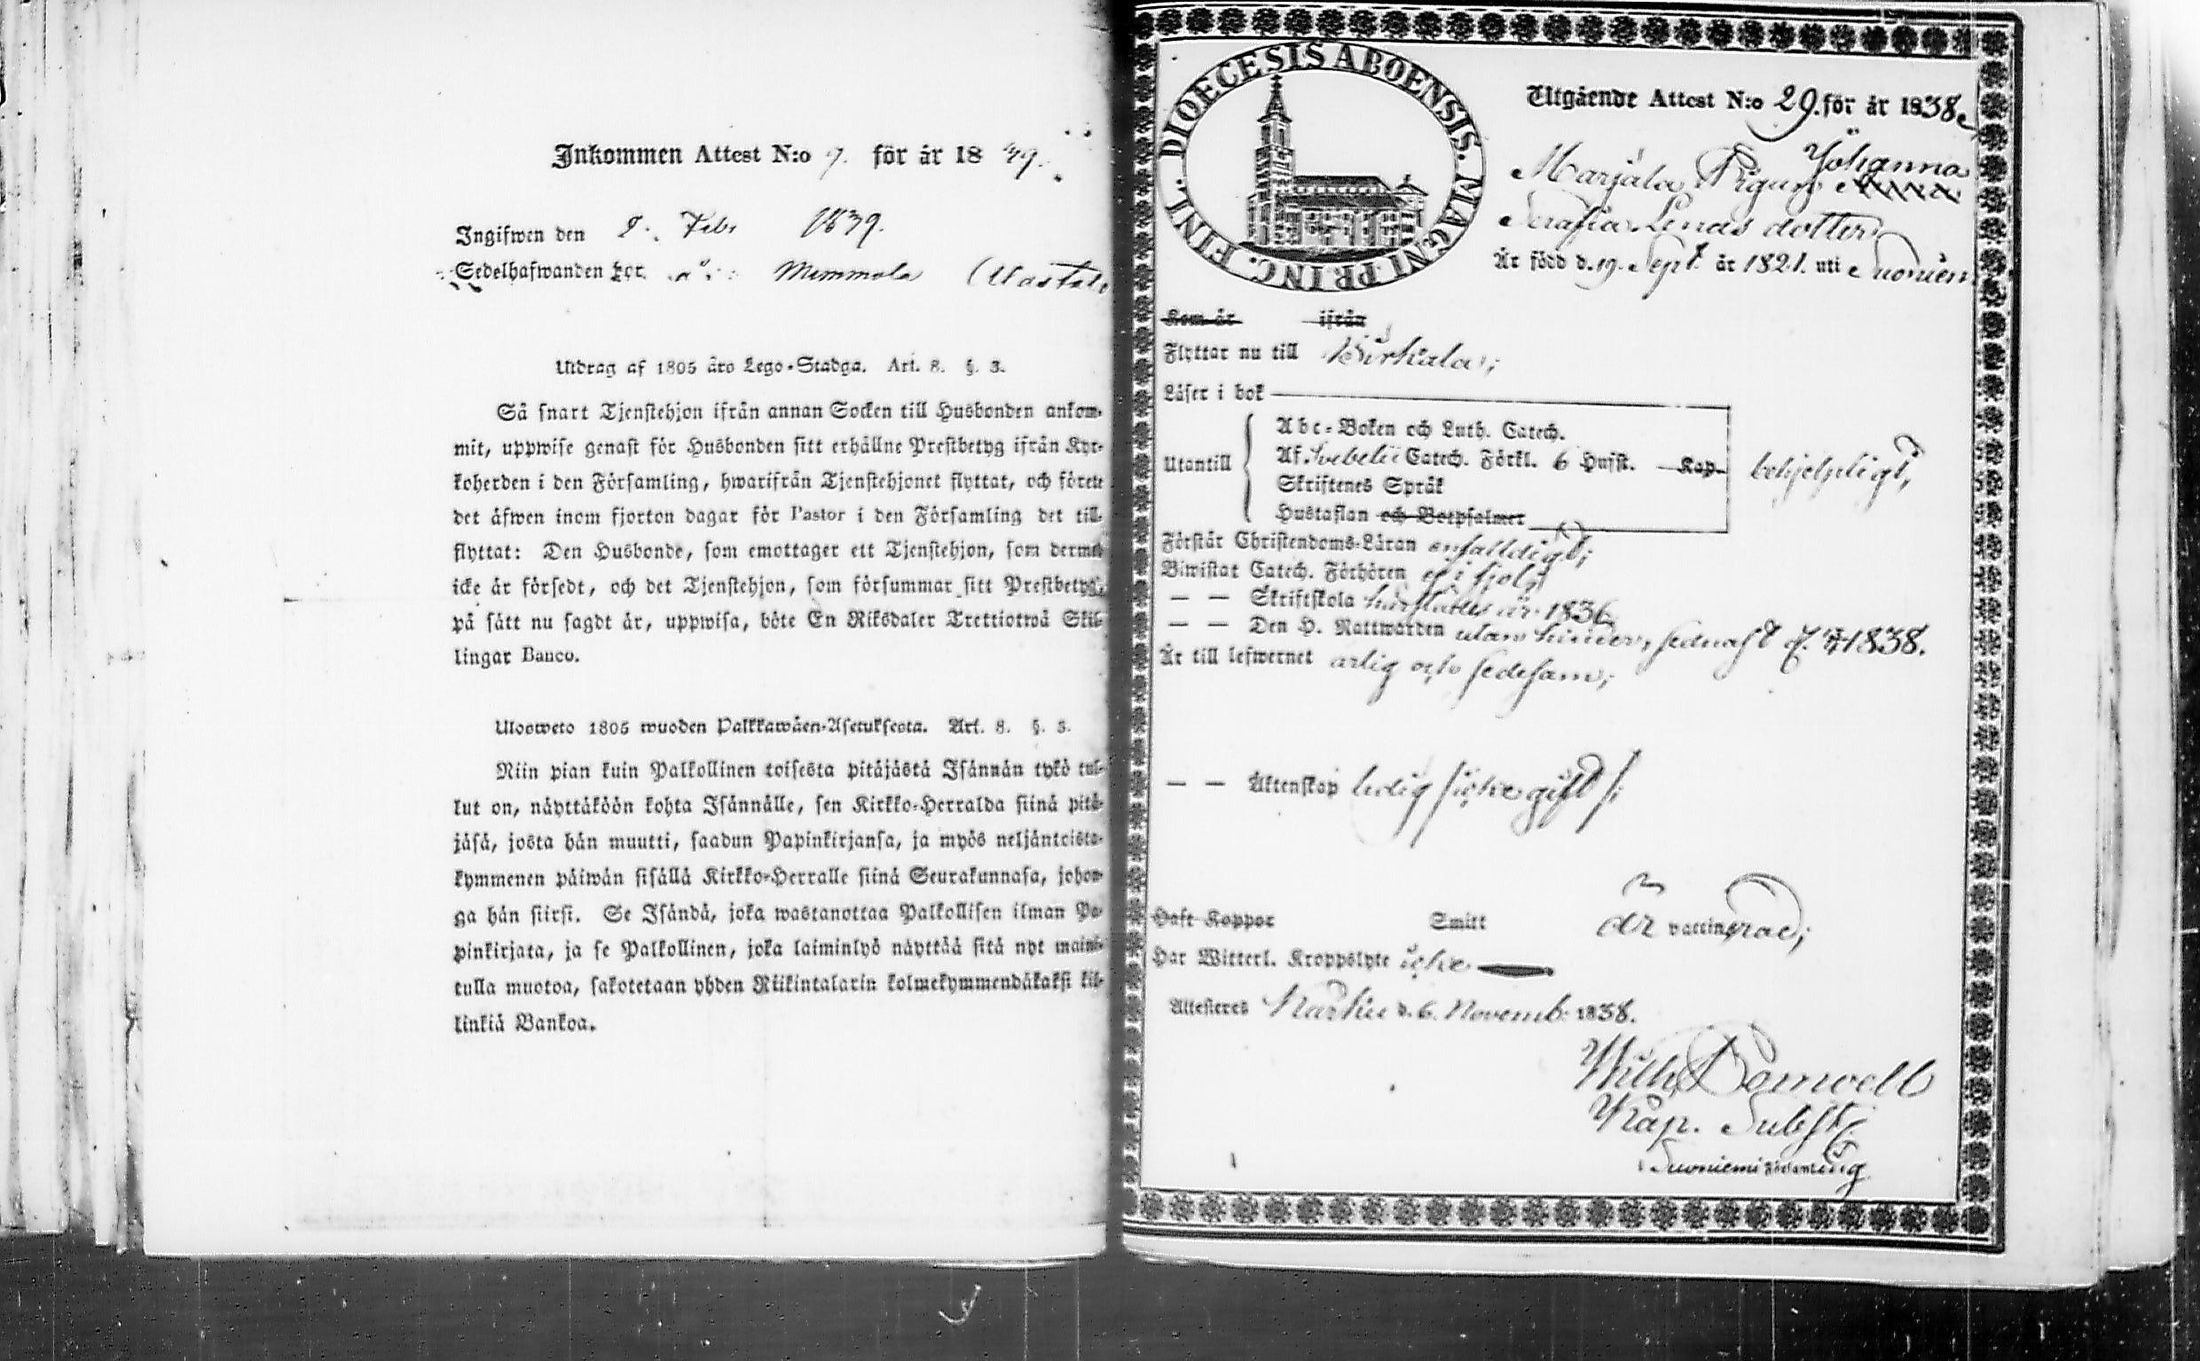 Inkommen Attest N:o 9. för år 18 39.
Ingifwen den 8. Febr 1839.
Sedelhafwanden bor
Utdrag af 1805 åro Lego-Stadga. Art. 8. §. 3.
Så snart Tjenstehjon ifrån annan Socken till Husbonden ankom-
mit, uppwise genast för Husbonden sitt erhållne Prestbetyg ifrån Kyr-
koherden i den Församling, hwarifrån Tjenstehjonet flyttat, och förete
det äfwen inom fjorton dagar för Pastor i den Församling det till-
flyttat: Den Husbonde, som emottager ett Tjenstehjon, som dermed
icke är försedt, och det Tjenstehjon, som försummar sitt Prestbetyg,
på sätt nu sagdt är, uppwisa, böte En Riksdaler Trettiotwå Skil-
lingar Banco.
Ulosweto 1805 wuoden Palkkawäen-Asetuksesta. Art. 8. §. 3.
Niin pian kuin Palkollinen toisesta pitäjästä Isännän tykö tul-
lut on, näyttäköön kohta Isännälle, sen Kirkko-Herralda siinä pitä-
jäsä, josta hän muutti, saadun Papinkirjansa, ja myös neljäntoista-
kymmenen päiwän sisällä Kirkko-Herralle siinä Seurakunnasa, johon-
ga hän siirsi. Se Isändä, joka wastanottaa Palkollisen ilman Pa-
pinkirjata, ja se Palkollinen, joka laiminlyö näyttää sitä nyt maini-
tulla muotoa, sakotetaan yhden Riikintalarin kolmekymmendäkaksi kil-
linkiä Bankoa.
DIOECESIS ABOENSIS. MAGNI PRINC. FINL.
Utgående Attest N:o 29. för år 1838.
Marjala Pigan Johanna
Serafia Lenas dotter
Är född d. 19. Sept. år 1821. uti Suoniem
Kom år ifrån
Flyttar nu till Birkala;
Läser i bok
Utantill
Abc-Boken och Luth. Catech.
Af Svebelii Catech. Förkl. 6 Hufst. Kap.
Skriftenes Språk
Hustaflan och Botpsalmer
behjelpligt,
Förstår Christendoms-Läran enfalldigt;
Biwistat Catech. Förhören i fjol,
— — Skriftskola år 1836
— — Den H. Nattwarden utan hinder, sednast 1838.
Är till lefwernet ärlig och sedesam;
— — Äktenskap ledig icke gift;
Haft Koppor Smitt är vaccinerad;
Har Witterl. Kroppslyte icke
Attesteres Karkku d. 6. Novemb. 1838.
Wilh. Bomwell
Kap. Subst.
i Suoniemi Församling